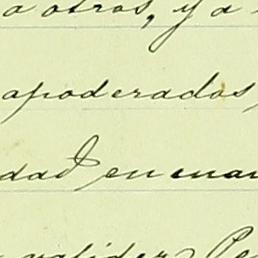 a otros, ya
apoderados,
dad en cuan
validez Pe